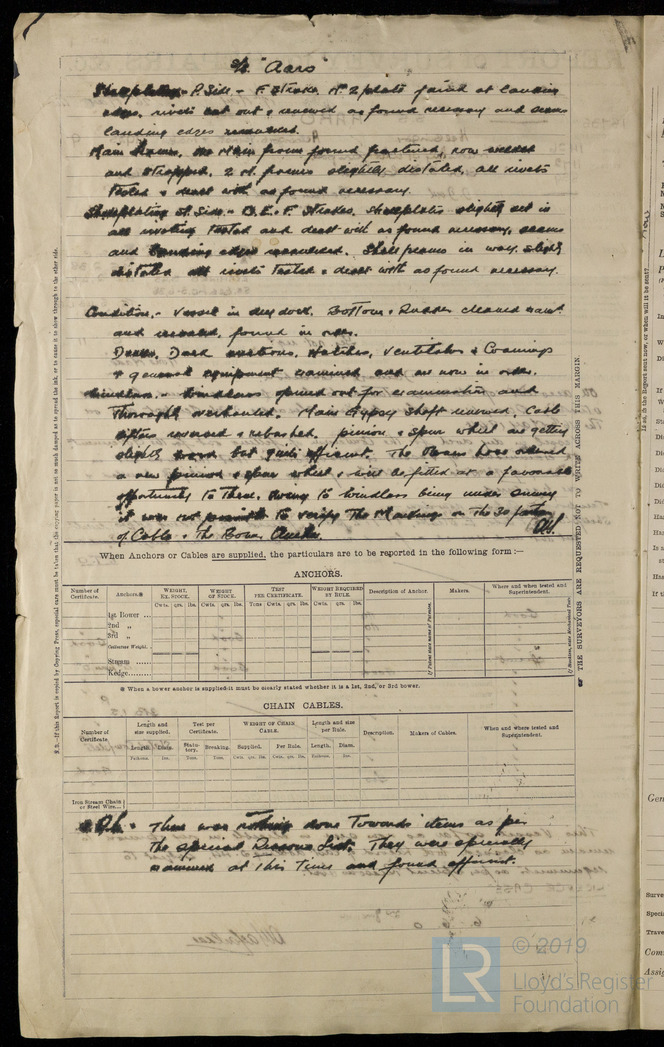 S/S "Aars"
Shellplating - P. Side - F. Strake No 2 plate faired at landing
edge, rivets cut out & renewed as found necessary and seams
landing edges recaulked.
Main Frames. One Main frame found fractured, now welded
and strapped. 2 M. frames slightly distorted, all rivets
Tested & dealt with as found necessary.
Shellplating St. Side. - D. E. & F. Strakes. Shellplates slightly set in
all riveting Tested and dealt with as found necessary, seams
and landing edges recaulked. Shell frames in way slightly
distorted all rivets Tested & dealt with as found necessary.
Condition. - Vessel in dry dock. Bottom & Rudder cleaned
and recoated, found in order.
Decks, Deck erections, Hatches, Ventilators & Coamings
& general equipment examined and are now in order.
Windlass. - Windlass opened out for examination and
Thoroughly overhauled. Main Gypsy Shaft renewed, Cable
lifters reversed & rebushed. pinion & spur wheel are getting
slightly worn but quite efficient. The Owners have ordered
a new pinion & spur wheel & will be fitted at a favourable
opportunity to Them. Owing to windlass being under survey
it was not possible to verify The Markings on The 30 fathoms
of Cable & The Bower Anchors.
When Anchors or Cables are supplied, the particulars are to be reported in the following form :—
ANCHORS.
Number of Certificate. Anchors.* WEIGHT, EX. STOCK. WEIGHT OF STOCK. TEST PER CERTIFICATE. WEIGHT REQUIRED BY RULE. Description of Anchor. Makers. Where and when tested and Superintendent.
Cwts. qrs. lbs. Cwts. qrs. lbs. Tons Cwts. qrs. lbs. Cwts. qrs. lbs.
1st Bower ...
2nd „
3rd „
Collective Weight.
Stream ......
Kedge........
* When a bower anchor is supplied it must be clearly stated whether it is a 1st, 2nd, or 3rd bower.
CHAIN CABLES.
Number of Certificate. Length and size supplied. Test per Certificate. WEIGHT OF CHAIN CABLE. Length and size per Rule. Description. Makers of Cables. When and where tested and Superintendent.
Length. Diam. Statutory. Breaking. Supplied. Per Rule. Length. Diam.
Fathoms. Ins. Tons. Tons. Cwts. qrs. lbs. Cwts. qrs. lbs. Fathoms. Ins.
Iron Stream Chain or Steel Wire...
There was nothing done Towards items as per
The special Reasons List. They were specially
examined at This Time and found efficient.
N.B.—If this Report is copied by Copying Press, especial care must be taken that the copying paper is not so much damped as to spread the ink, or to cause it to show through to the other side.
THE SURVEYORS ARE REQUESTED NOT TO WRITE ACROSS THIS MARGIN.
LR
© 2019
Lloyd's Register
Foundation